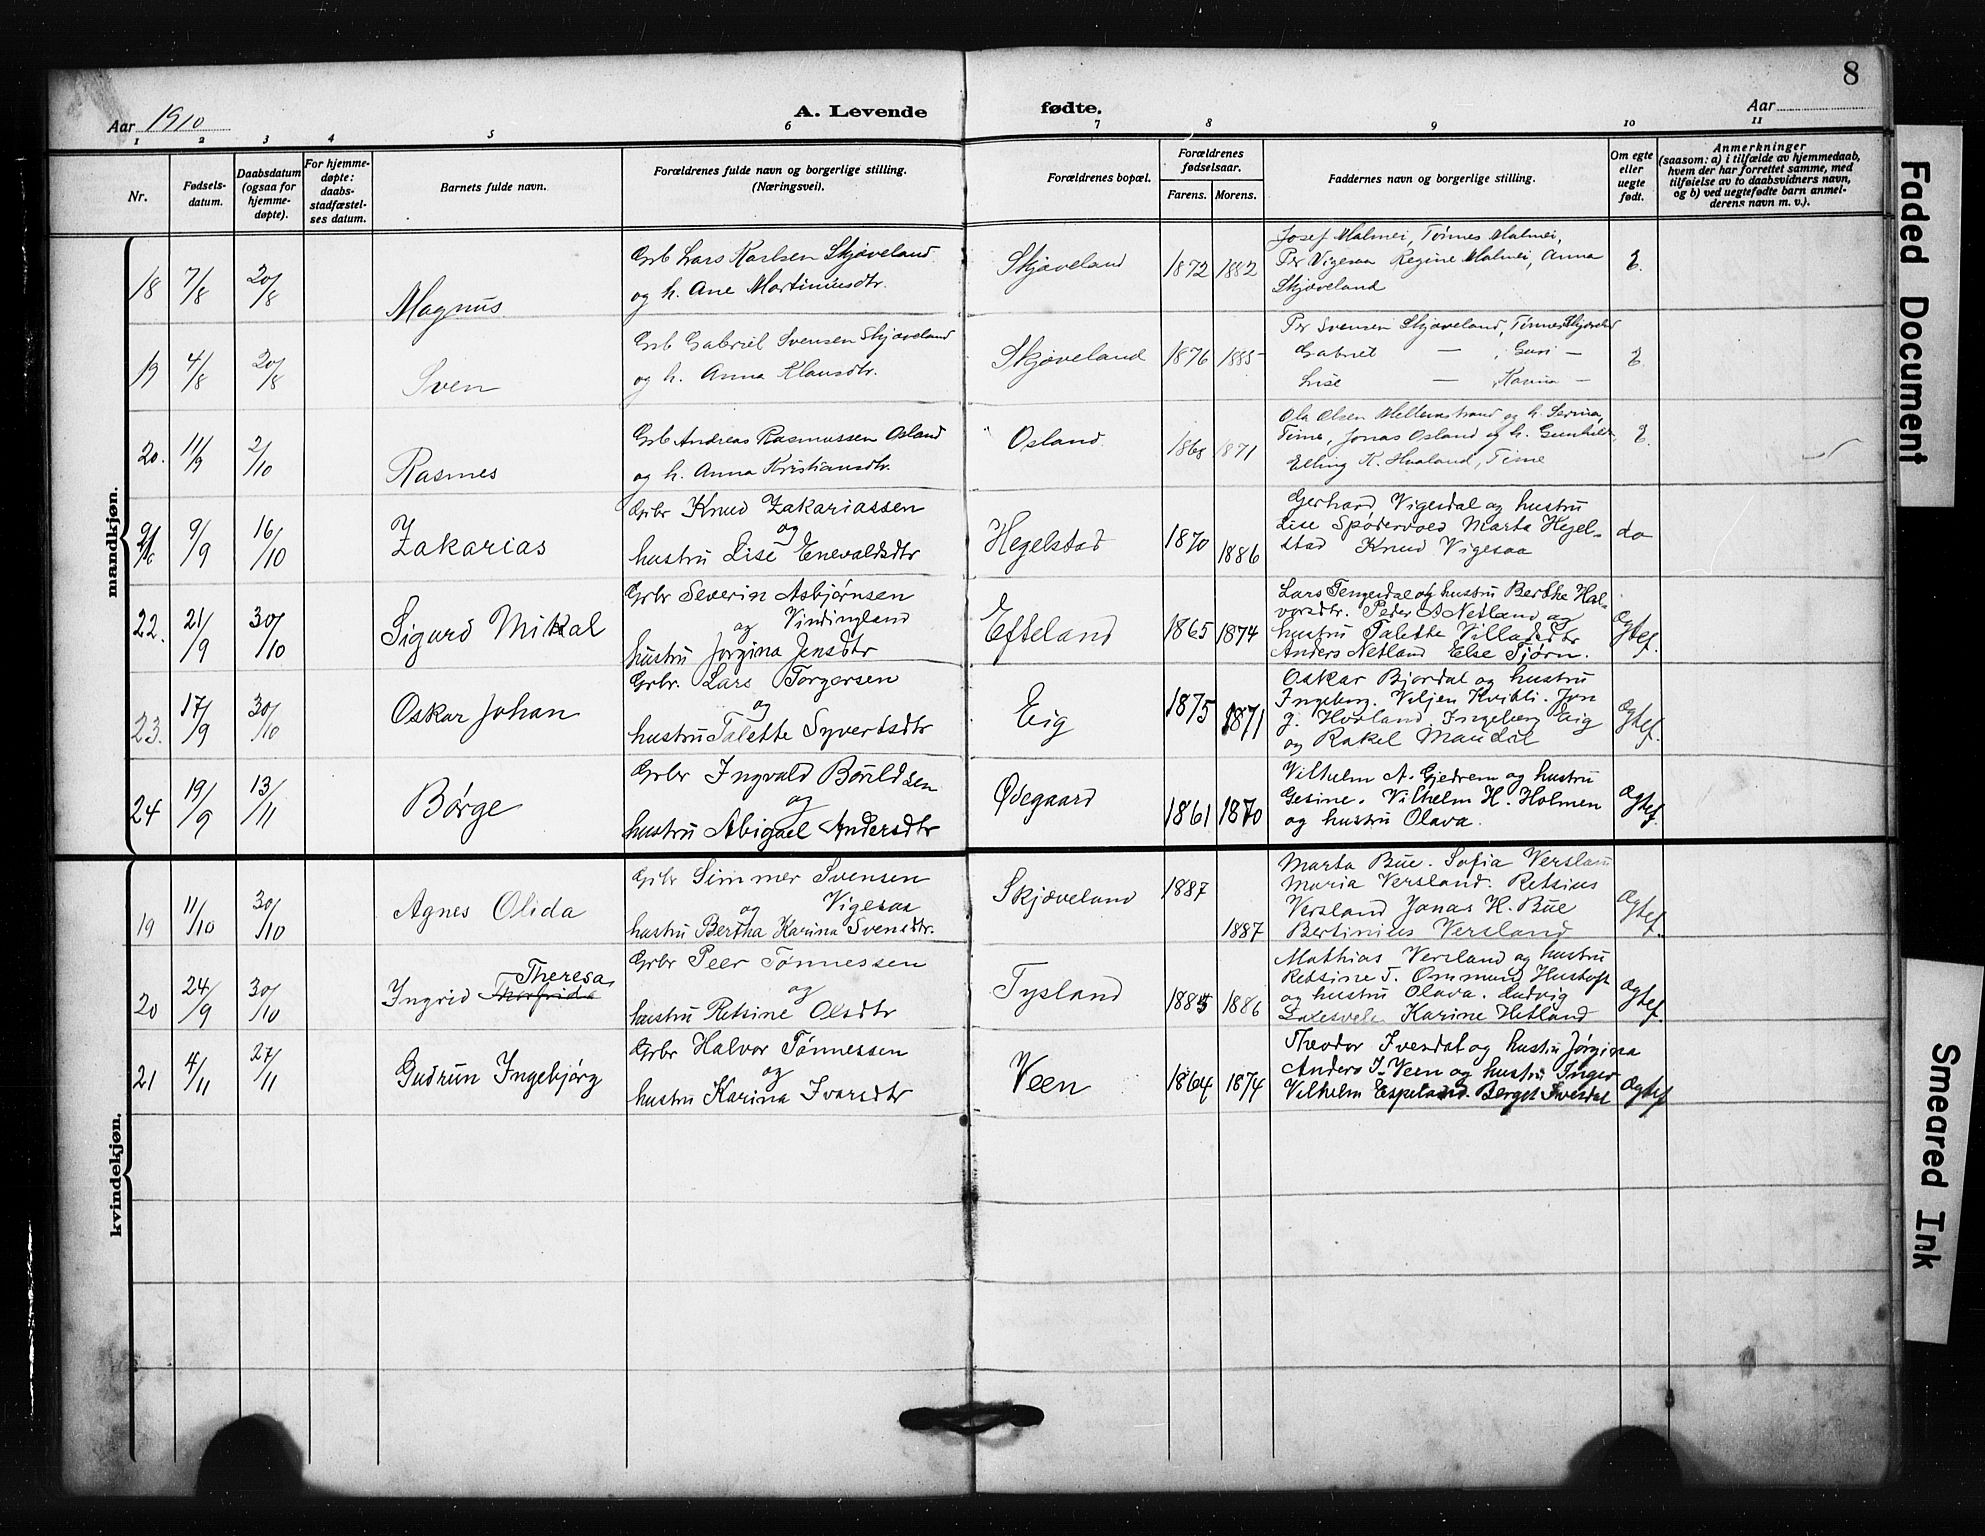 8
Aar 1910
A. Levende fødte.
Aar
1 2 3 4 5 6 7 8 9 10 11
Nr.
Fødsels-
datum.
Daabsdatum
(ogsaa for
hjemme-
døpte).
For hjemme-
døpte:
daabs-
stadfæstel-
ses datum.
Barnets fulde navn.
Forældrenes fulde navn og borgerlige stilling.
(Næringsvei).
Forældrenes bopæl.
Forældrenes
fødselsaar.
Farens. Morens.
Faddernes navn og borgerlige stilling.
Om egte
eller
uegte
født.
Anmerkninger
(saasom: a) i tilfælde av hjemmedaab,
hvem der har forrettet samme, med
tilføielse av to daabsvidners navn,
og b) ved uegtefødte barn anmel-
derens navn m. v.).
mandkjøn.
18 7/8 20/8 Magnus
Grb Lars Karlsen Skjæveland
og h. Ane Martiniusdtr.
Skjæveland 1872 1882
Josef Malmei, Tønnes Malmei,
Per Vigesaa Regine Malmei, Anna
Skjæveland
E.
19 4/8 20/8 Sven
Grb Gabriel Svensen Skjæveland
og h. Anna Klausdtr.
Skjæveland 1876 1885
Per Svensen Skjæveland, Tønnes
Gabriel — , Guri —
Lise — , —
E.
20. 11/9 2/10 Rasmes
Grb Andreas Rasmussen Osland
og h. Anna Kristiansdtr.
Osland. 1871
Ola Olsen Mellemstrand og h. Serina,
Time, Jonas Osland og h. Gunhild,
Elling K. Hualand, Time
E.
21 9/9 16/10 Zakarias
Grbr Knud Zakariassen
og
hustru Lise Enevaldsdtr
Hegelstad 1870 1886
Gerhard Vigesdal og hustru
Lise Spødervold Marta Hegel-
stad Knud Vigesaa
do
22. 21/9 30/10 Sigurd Mikal
Grbr Severin Asbjørnsen
og Vindingland
hustru Jorgina Jensdtr
Efteland 1865 1874
Lars Tengesdal og hustru Berthe Hal-
vorsdtr. Peder A Netland og
hustru Talette Villadsdtr
Anders Netland Else Tjørn.
Ægtef.
23. 17/9 30/10 Oskar Johan
Grbr. Lars Torgersen
og
hustru Talette Syvertsdtr
Eig 1875 1871
Oskar Bjordal og hustru
Ingeborg. Viljen Kvibli. Jon
J. Hovland Ingeborg Eig
og Rakel Maudal
Ægtef.
24 19/9 13/11 Børge
Grbr Ingvald Børildsen
og
hustru Abigael Andersdtr
Ødegaard 1861 1870
Vilhelm A. Gjedrem og hustru
Gesine. Vilhelm H. Holmen
og hustru Olava.
Ægtef.
kvindekjøn.
19 11/10 30/10 Agnes Olida
Grbr Simmer Svensen
og Vigesaa
hustru Bertha Karina Svensdtr.
Skjæveland 1887 1887
Marta Bue. Sofia Versland
Maria Versland. Retsius
Versland Jonas H. Bue
Bertinius Versland
Ægtef.
20 24/9 30/10 Theresa
Ingrid Thorfrida
Grbr Peer Tønnessen
og
hustru Retsine Olsdtr
Tysland 1885 1886
Mathias Versland og hustru
Retsine T. Ommund Hustoft
og hustru Olava. Ludvig
Karine Hetland
Ægtef.
21 4/11 27/11 Gudrun Ingebjørg
Grbr Halvor Tønnessen
og
hustru Karina Ivarsdtr
Veen 1864 1874
Theodor Ivesdal og hustru Jørgina
Anders I. Veen og hustru Inger
Vilhelm Espeland. Berget Ivesdal
Ægtef
Faded Document
Smeared Ink